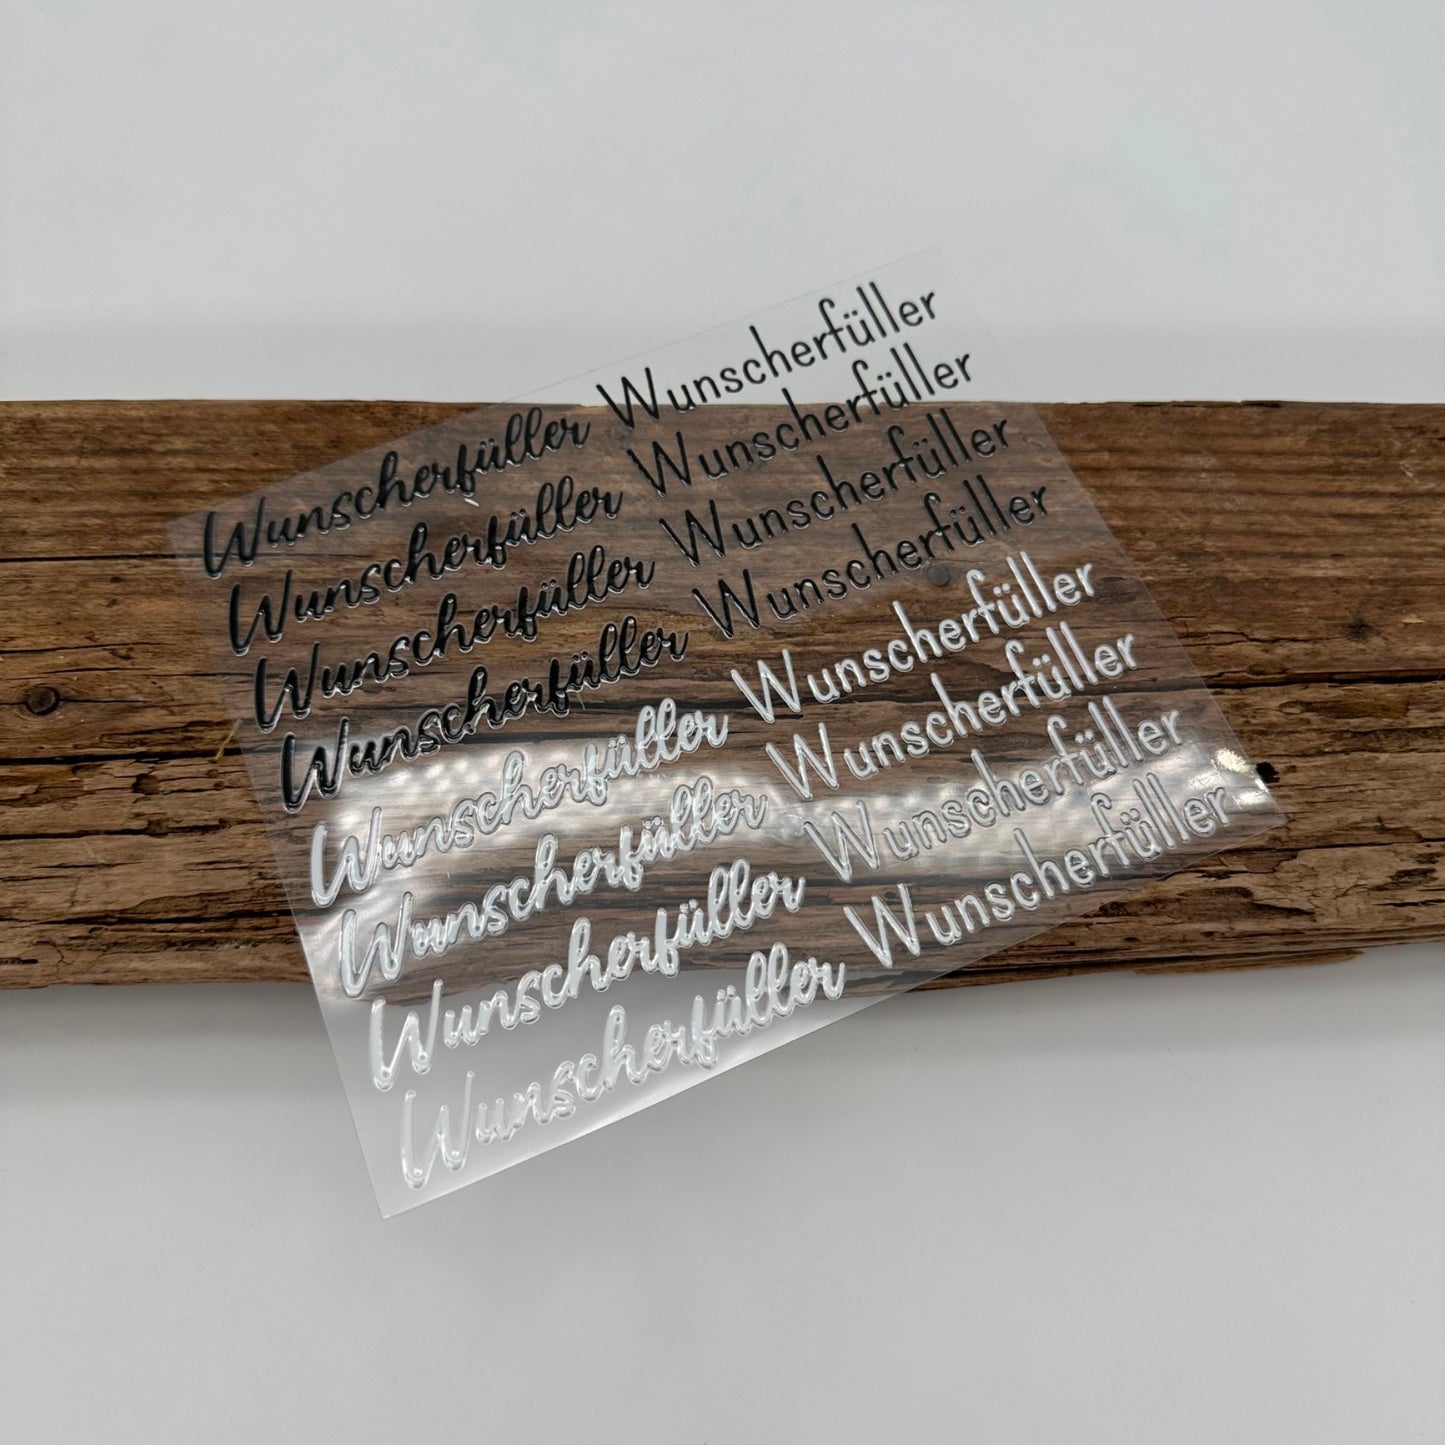 Wunscherfüller Wunscherfüller
Wunscherfüller Wunscherfüller
Wunscherfüller Wunscherfüller
Wunscherfüller Wunscherfüller
Wunscherfüller Wunscherfüller
Wunscherfüller Wunscherfüller
Wunscherfüller Wunscherfüller
Wunscherfüller Wunscherfüller